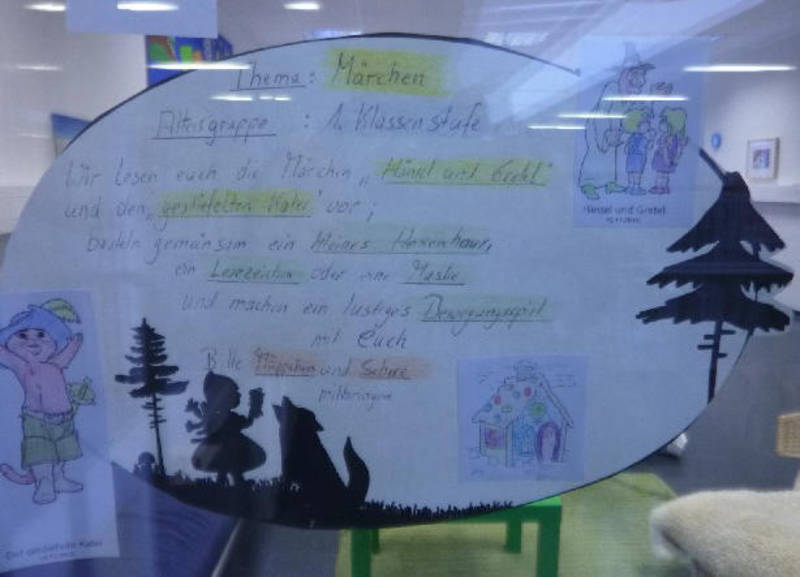 Thema: Märchen
Altersgruppe : 1. Klassenstufe
Wir lesen euch die Märchen „Hänsel und Gretel"
und den „gestiefelten Kater" vor,
basteln gemeinsam ein kleines Hexenhaus,
ein Lesezeichen oder eine Maske
und machen ein lustiges Bewegungsspiel
mit euch
Bitte und Schere
mitbringen
Hänsel und Gretel
Der gestiefelte Kater